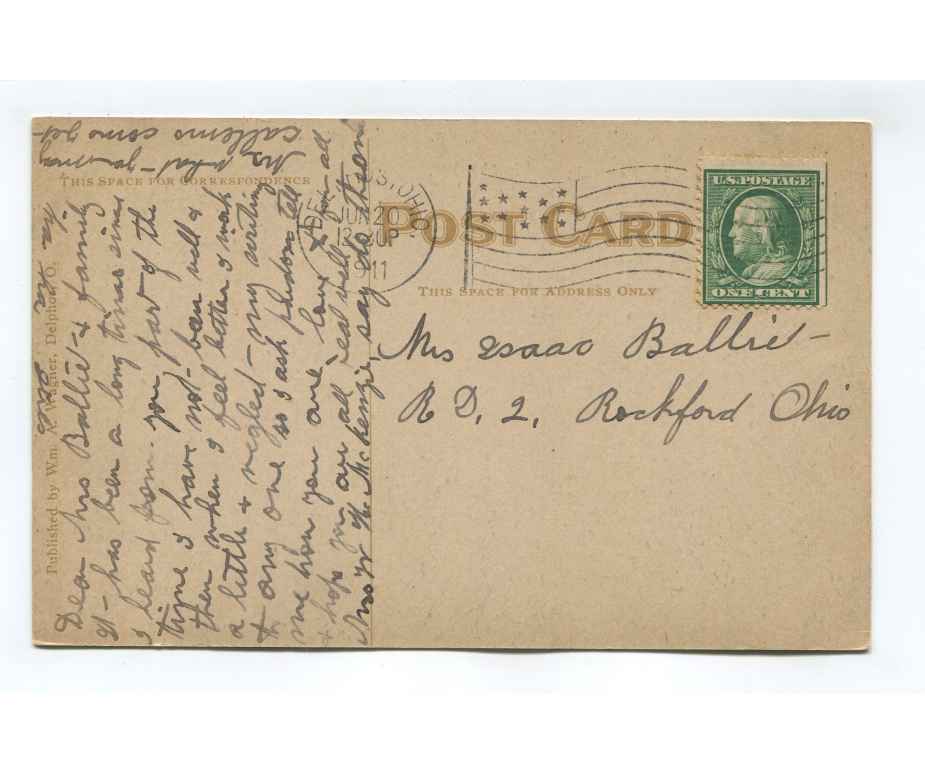 THIS SPACE FOR CORRESPONDENCE
POST CARD
THIS SPACE FOR ADDRESS ONLY
DELPHOS, OHIO
JUN 20
1911
U.S. POSTAGE
ONE CENT
Mrs Isaac Ballie
R D, 2, Rockford Ohio
Published by Wm. A. Wagner, Delphos, O.
Dear Mrs Ballie & family
It has been a long time since
I heard from you part of the
time I have not been well &
then when I feel better I work
a little & neglect my writing
to any one so I ask pardon tell
me how you are
& hope you are all real well from all
Mrs W H McKenzie say